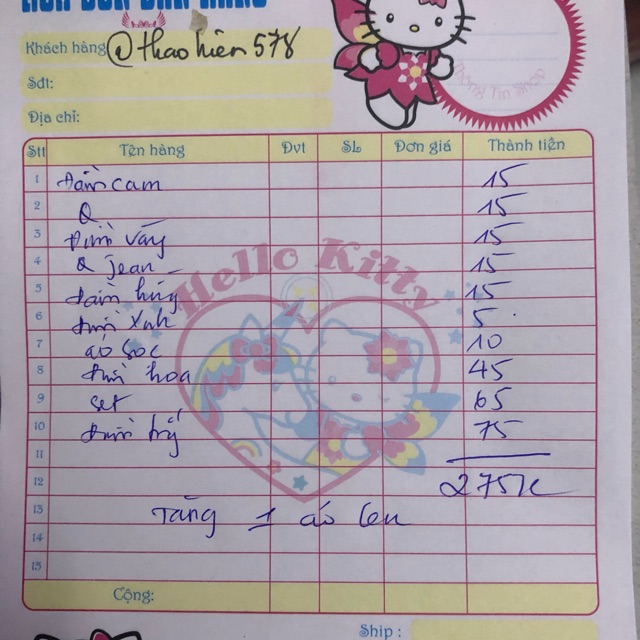 HÓA ĐƠN BÁN HÀNG
Khách hàng @thaohien578
Sđt:
Địa chỉ:
Thông Tin Shop
Stt Tên hàng Đvt SL Đơn giá Thành tiền
1 Đầm cam 15
2 Q 15
3 Đầm vàng 15
4 Q jean 15
5 Đầm hồng 15
6 Đầm xanh 5
7 áo sọc 10
8 Đầm hoa 45
9 set 65
10 Đầm trắng 75
Hello Kitty
11
12 275K
13 Tặng 1 áo len
14
15
Cộng:
Ship :